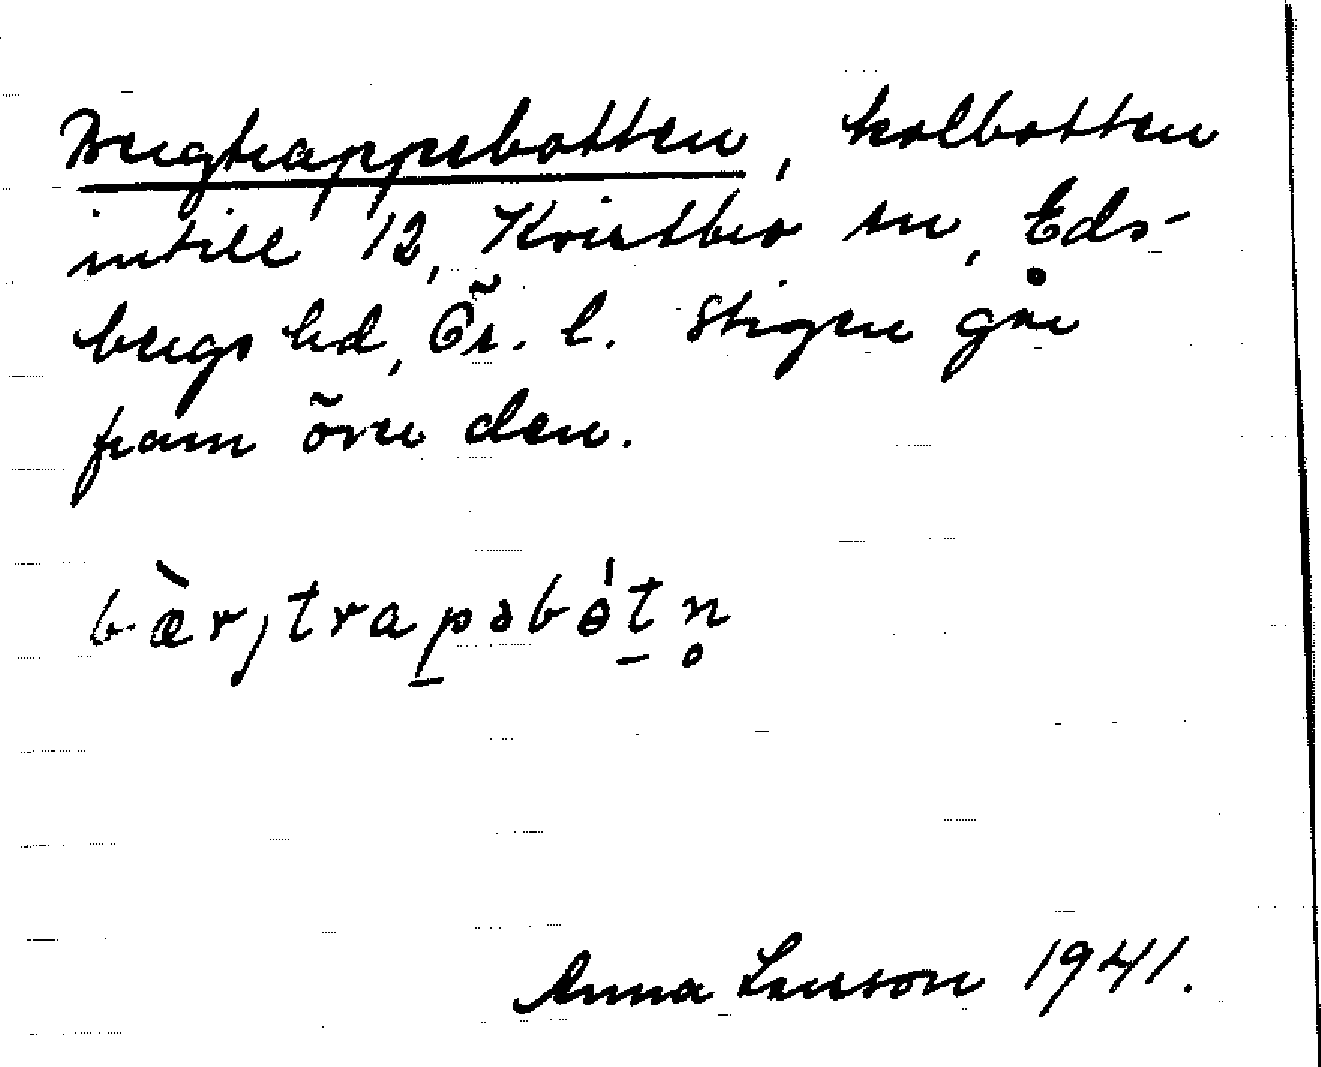 Bergtrappebotten, kolbotten
intill 12, Kvistbro sn, Eds-
bergs hd, Ör. l. Stigen går
fram över den.
bær̀jtrapəbòtn̥
Anna Larson 1941.